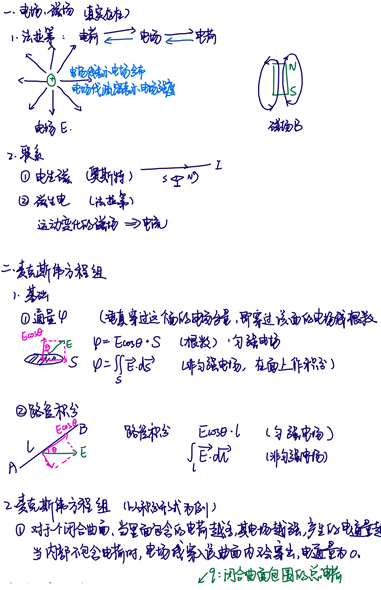 一、电场、磁场 (真实存在)
1. 法拉第: 电荷 ⇌ 电场 ⇌ 电荷
电场线表示电场分布
电场线疏密表示电场强度
+
N
S
电场E.
磁场B
2. 联系
① 电生磁 (奥斯特)
I
S N
② 磁生电 (法拉第)
运动变化的磁场 ⇒ 电流
二. 麦克斯韦方程组
1. 基础
① 通量φ (垂直穿过这个面的电场分量, 即穿过该面的电场线根数
Ecosθ
θ
E
S
φ = Ecosθ·S (根数) 匀强电场
φ = ∬_S E⃗·ds⃗ (非匀强电场, 在面上作积分)
② 路径积分
Ecosθ
B
l
θ
E
A
路径积分 Ecosθ·l (匀强电场)
∫_l E⃗·dl⃗ (非匀强电场)
2. 麦克斯韦方程组 (以积分形式为例)
① 对于个闭合曲面, 当里面包含的电荷越多, 其电场越强, 产生的电通量越
当内部不包含电荷时, 电场线穿入该曲面内又会穿出, 电通量为0.
q: 闭合曲面包围的总电荷